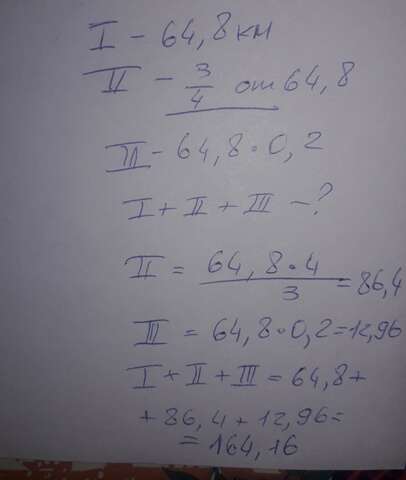 I - 64,8 км
II - 3/4 от 64,8
III - 64,8 · 0,2
I + II + III - ?
II = 64,8 · 4 / 3 = 86,4
III = 64,8 · 0,2 = 12,96
I + II + III = 64,8 +
+ 86,4 + 12,96 =
= 164,16